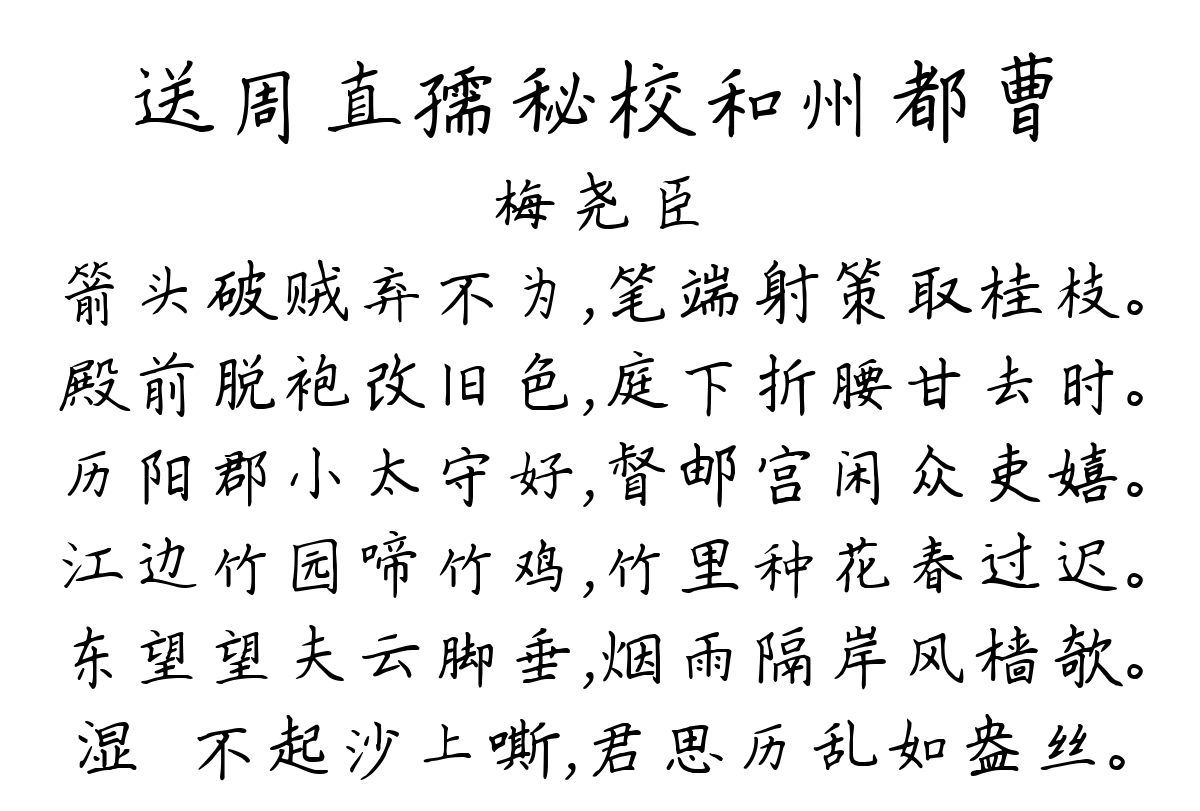 送周直孺秘校和州都曹
梅尧臣
箭头破贼弃不为,笔端射策取桂枝。
殿前脱袍改旧色,庭下折腰甘去时。
历阳郡小太守好,督邮官闲众吏嬉。
江边竹园啼竹鸡,竹里种花春过迟。
东望望夫云脚垂,烟雨隔岸风樯欹。
湿 不起沙上嘶,君思历乱如盎丝。